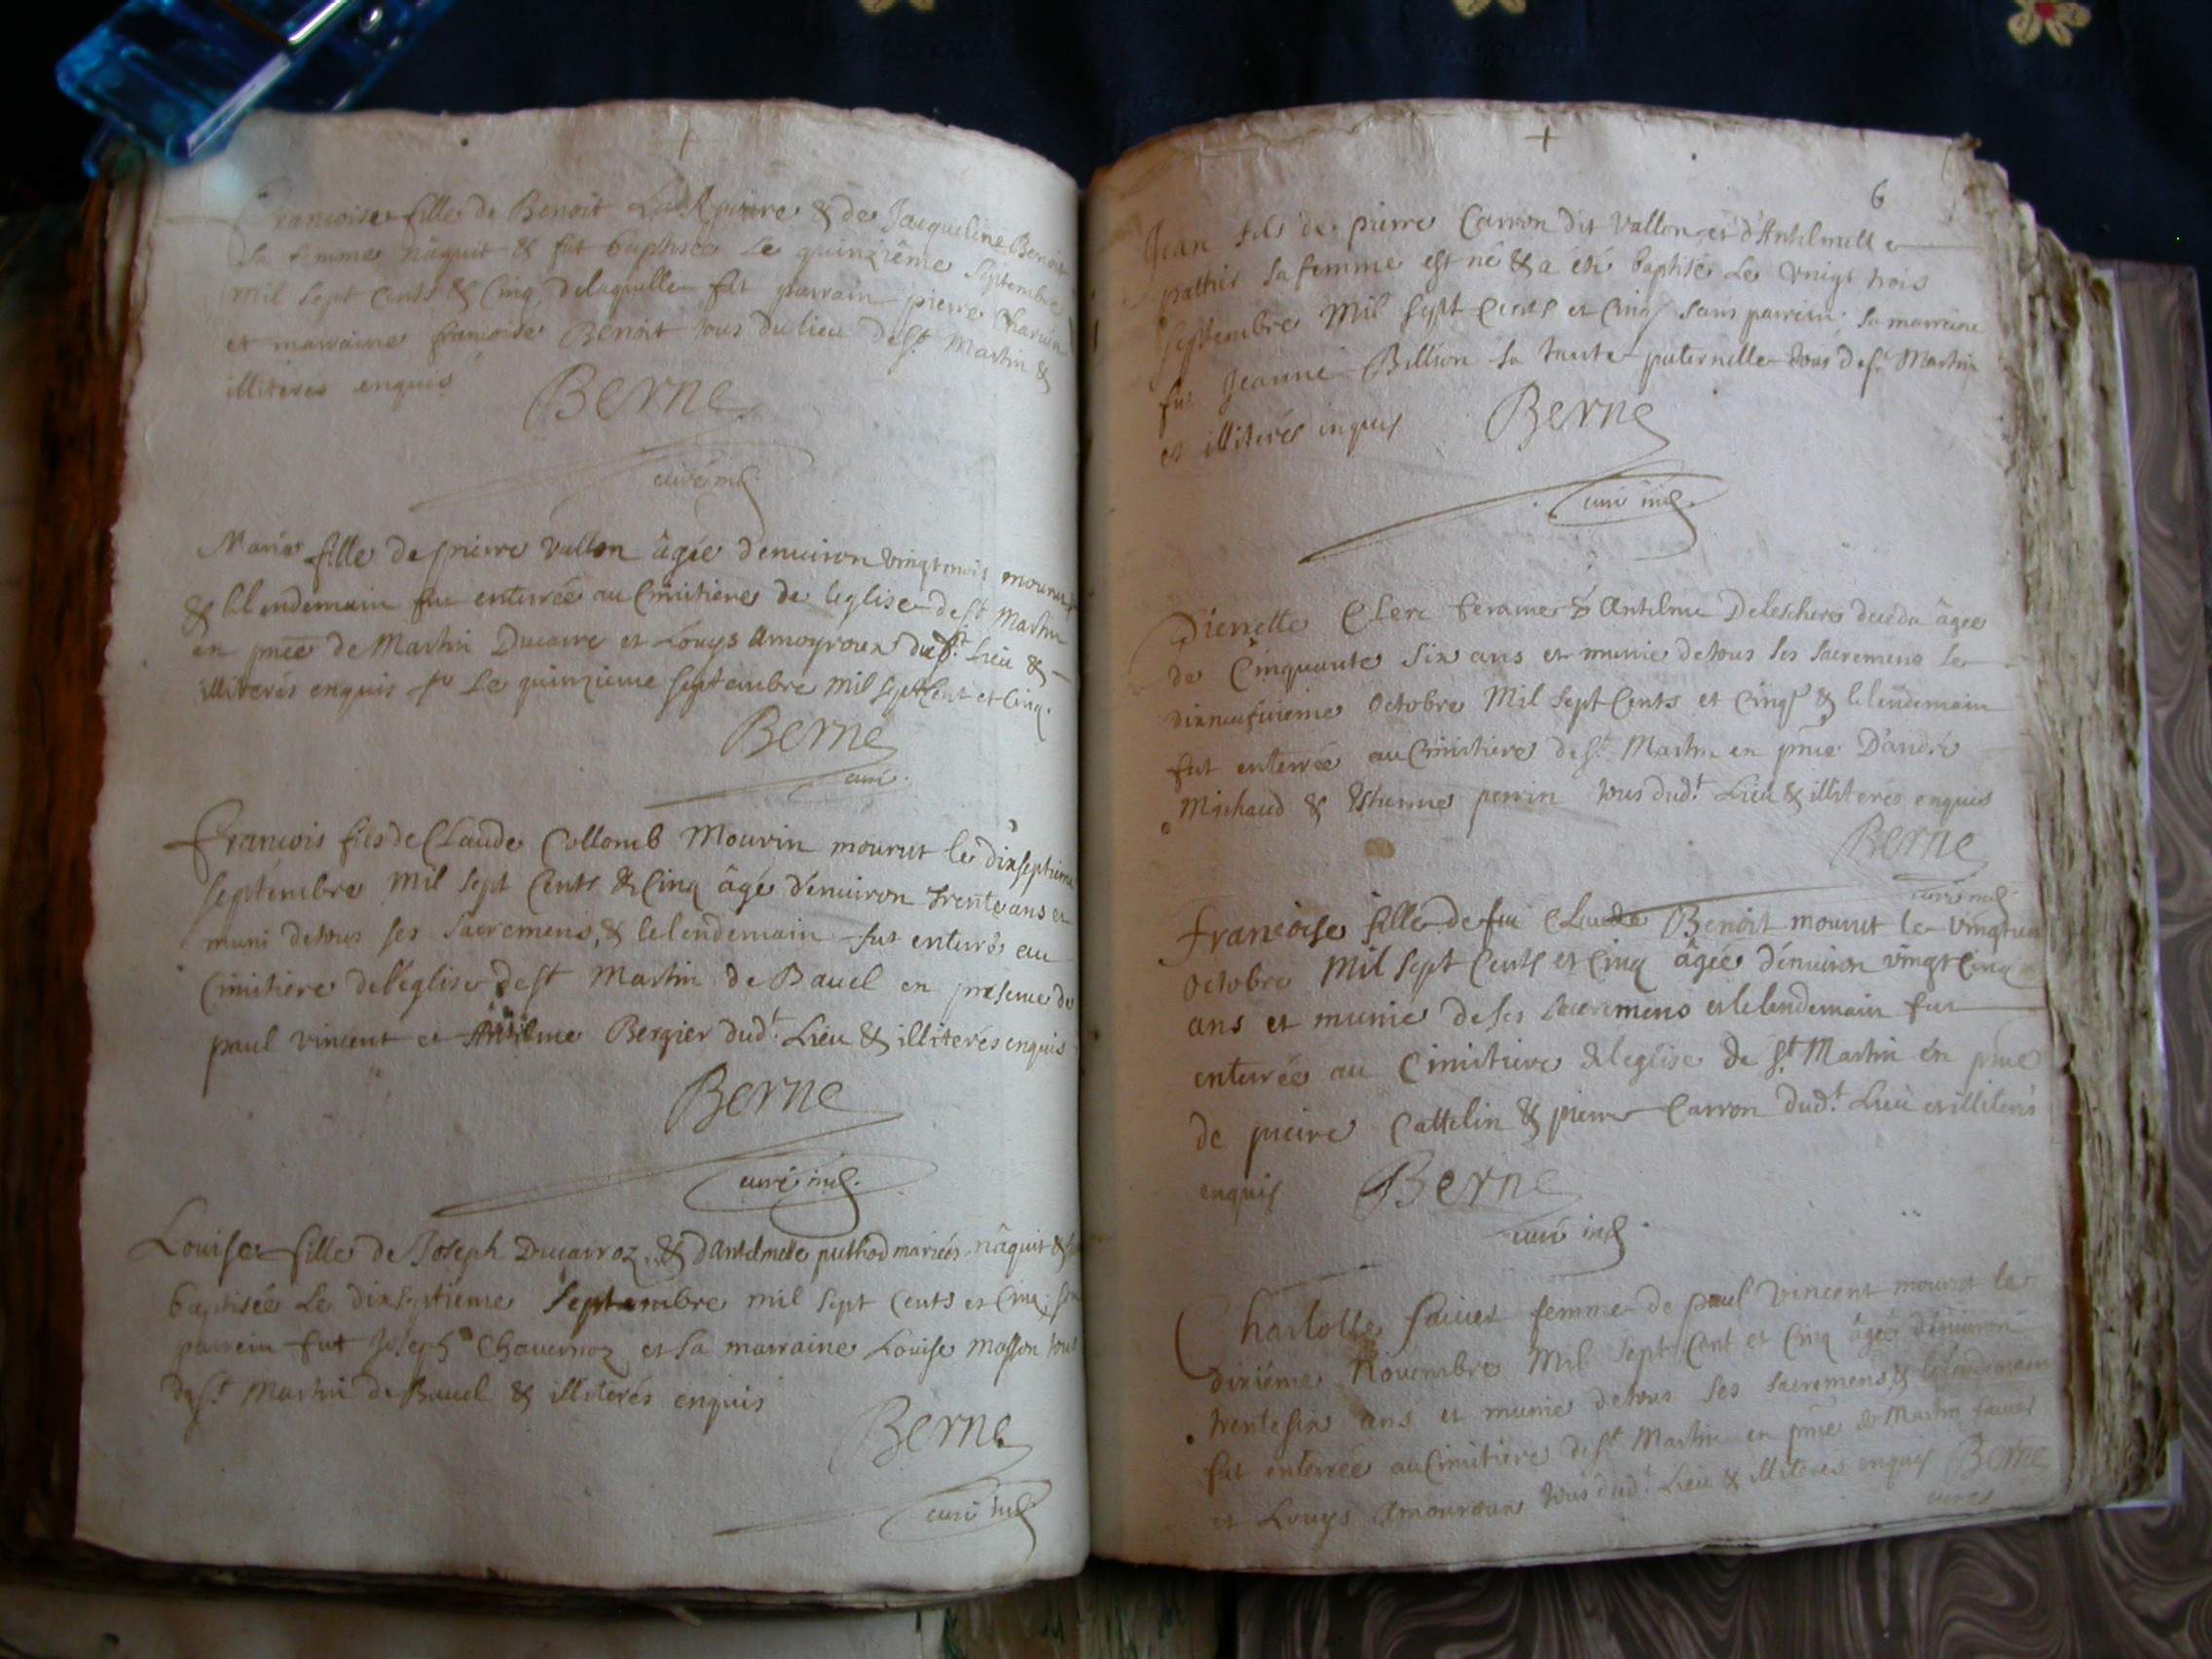 Francoise fille de Benoit & de Jacqueline Benoit
sa femme nâquit & fut baptisée le quinzième Septembre
mil sept cents & cinq delaquelle fut parrain pierre
et marraine francoise Benoit tous du lieu de St Martin &
illiterés enquis
Berne
curé
Marie fille de pierre vallon âgée denuiron vingt mois mourut
& lelendemain fut enterrée au Cimitiere de leglise de St Martin
en pnce de Martin Ducarre et Louys Amoyroux dud.t Lieu &
illiterés enquis le quinzieme septembre mil sept cent et cinq.
Berne
curé
Francois fils de Claude Collomb Mourin mourut le dixseptieme
septembre mil sept Cents & Cinq âgé d'enuiron trente ans et
muni de tous ses sacremens, & lelendemain fut enterré au
Cimitiere de l'église de St Martin de Bauel en presence de
paul vincent et Antilme Bergier dud.t Lieu & illiterés enquis
Berne
curé
Louise fille de Joseph Ducarroz & d'Antelmete puthod mariés nâquit &
baptisée Le dixseptieme Septembre mil sept Cents et Cinq, son
parrein fut Joseph Chauernoz et sa marraine Louise Masson tous
de St Martin de Bauel & illiterés enquis
Berne
curé
6
Jean fils de pierre Carron dit vallon et d'Antelmette
sa femme est né & a été baptisé Le vingt trois
septembre Mil sept Cents et Cinq sans parrein, sa marreine
fut Jeanne Billion sa tante paternelle tous de St Martin
et illiterés enquis
Berne
curé
Pierrette Clerc femme d'Antelme Deleschere deceda âgée
de Cinquante six ans et munie de tous ses sacremens le
dixneufuieme Octobre Mil sept Cents et Cinq & lelendemain
fut enterrée au Cimitiere de St Martin en pnce D'andré
Michaud & Estienne perrin tous dud.t Lieu & illiterés enquis
Berne
curé
francoise fille de feu Claude Benoit mourut le vingtun
Octobre Mil sept Cents et Cinq âgée d'enuiron vingt Cinq
ans et munie de ses sacremens et lelendemain fut
enterrée au Cimitiere de leglise de St Martin en pnce
de pierre Cattelin & pierre Carron dud.t Lieu et illiterés
enquis
Berne
curé
Charlotte femme de paul Vincent mourut le
dixiéme Nouembre Mil sept Cent et Cinq âgée d'enuiron
trente six ans et munie de tous ses sacremens & lelendemain
fut enterrée au Cimitiere de St Martin en pnce de Martin
et Louys Amouroux tous dud.t Lieu & illiterés enquis Berne
curé